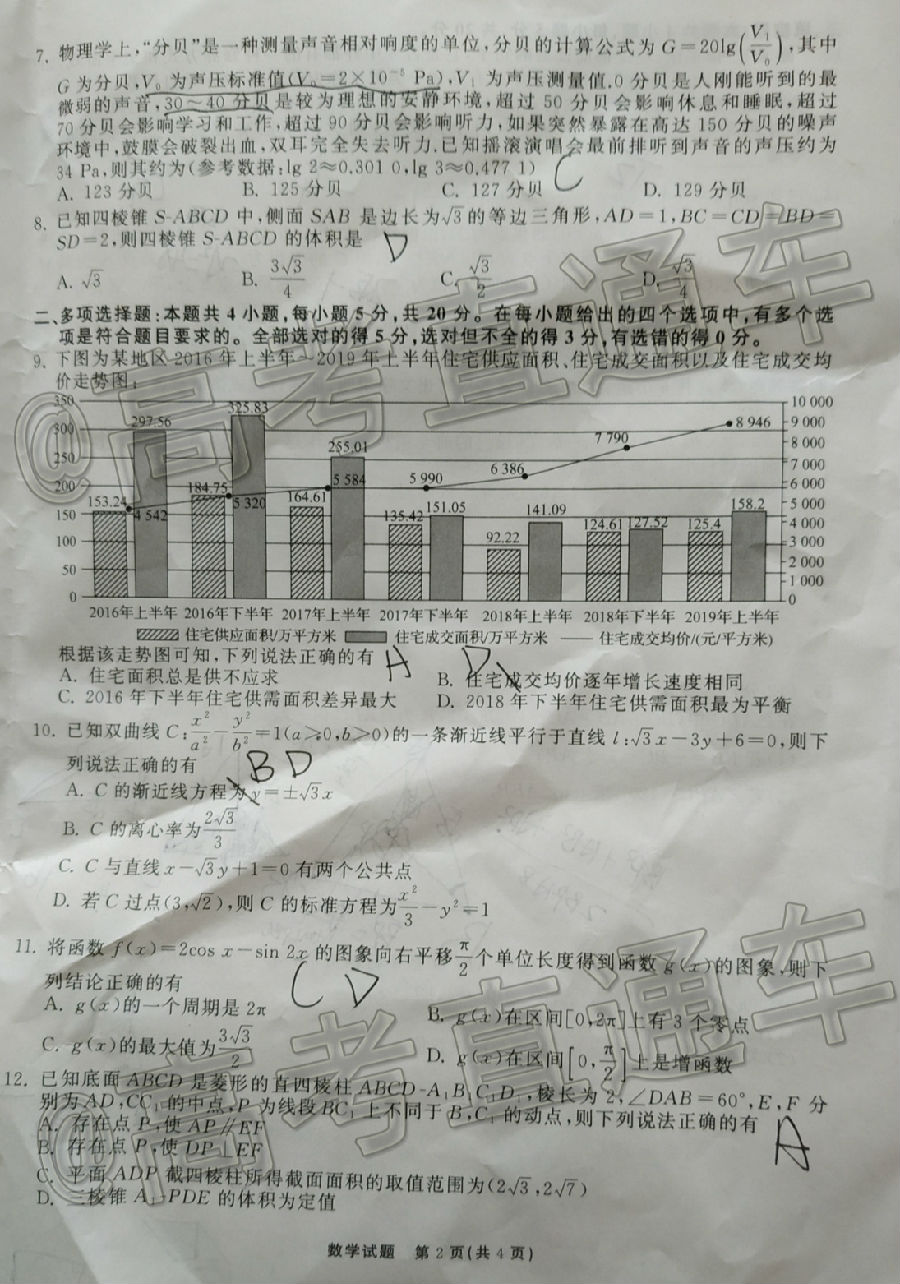 7. 物理学上,“分贝”是一种测量声音相对响度的单位,分贝的计算公式为 G=20lg(V₁/V₀),其中
G 为分贝,V₀ 为声压标准值(V₀=2×10⁻⁵ Pa),V₁ 为声压测量值.0 分贝是人刚能听到的最
微弱的声音,30～40 分贝是较为理想的安静环境,超过 50 分贝会影响休息和睡眠,超过
70 分贝会影响学习和工作,超过 90 分贝会影响听力,如果突然暴露在高达 150 分贝的噪声
环境中,鼓膜会破裂出血,双耳完全失去听力.已知摇滚演唱会最前排听到声音的声压约为
34 Pa,则其约为(参考数据:lg 2≈0.301 0,lg 3≈0.477 1) C
A. 123 分贝 B. 125 分贝 C. 127 分贝 D. 129 分贝
8. 已知四棱锥 S-ABCD 中,侧面 SAB 是边长为√3的等边三角形,AD=1,BC=CD=BD=
SD=2,则四棱锥 S-ABCD 的体积是 D
A. √3 B. 3√3/4 C. √3/2 D. √3/4
二、多项选择题:本题共 4 小题,每小题 5 分,共 20 分。在每小题给出的四个选项中,有多个选
项是符合题目要求的。全部选对的得 5 分,选对但不全的得 3 分,有选错的得 0 分。
9. 下图为某地区 2016 年上半年～2019 年上半年住宅供应面积、住宅成交面积以及住宅成交均
价走势图:
350 325.83 10 000
300 297.56 8 946 9 000
250 255.01 7 790 8 000
7 000
200 184.75 164.61 5 584 5 990 6 386 6 000
153.24 5 320 151.05 141.09 158.2 5 000
150 4 542 135.42 124.61 127.52 125.4 4 000
100 92.22 3 000
2 000
50 1 000
0 0
2016年上半年 2016年下半年 2017年上半年 2017年下半年 2018年上半年 2018年下半年 2019年上半年
住宅供应面积/万平方米 住宅成交面积/万平方米 住宅成交均价/(元/平方米)
根据该走势图可知,下列说法正确的有 A D
A. 住宅面积总是供不应求 B. 住宅成交均价逐年增长速度相同
C. 2016 年下半年住宅供需面积差异最大 D. 2018 年下半年住宅供需面积最为平衡
10. 已知双曲线 C:x²/a²-y²/b²=1(a>0,b>0)的一条渐近线平行于直线 l:√3x-3y+6=0,则下
列说法正确的有 BD
A. C 的渐近线方程为 y=±√3x
B. C 的离心率为2√3/3
C. C 与直线 x-√3y+1=0 有两个公共点
D. 若 C 过点(3,√2),则 C 的标准方程为x²/3-y²=1
11. 将函数 f(x)=2cos x-sin 2x 的图象向右平移π/2个单位长度得到函数 g(x)的图象,则下
列结论正确的有 CD
A. g(x)的一个周期是 2π B. g(x)在区间[0,2π]上有 3 个零点
C. g(x)的最大值为3√3/2 D. g(x)在区间[0,π/2]上是增函数
12. 已知底面 ABCD 是菱形的直四棱柱 ABCD-A₁B₁C₁D₁,棱长为 2,∠DAB=60°,E,F 分
别为 AD,CC₁ 的中点,P 为线段 BC₁ 上不同于 B,C₁ 的动点,则下列说法正确的有 A
A. 存在点 P,使 AP∥EF
B. 存在点 P,使 DP⊥EF
C. 平面 ADP 截四棱柱所得截面面积的取值范围为(2√3,2√7)
D. 三棱锥 A₁-PDE 的体积为定值
数学试题 第 2 页(共 4 页)
@高考直通车
@高考直通车